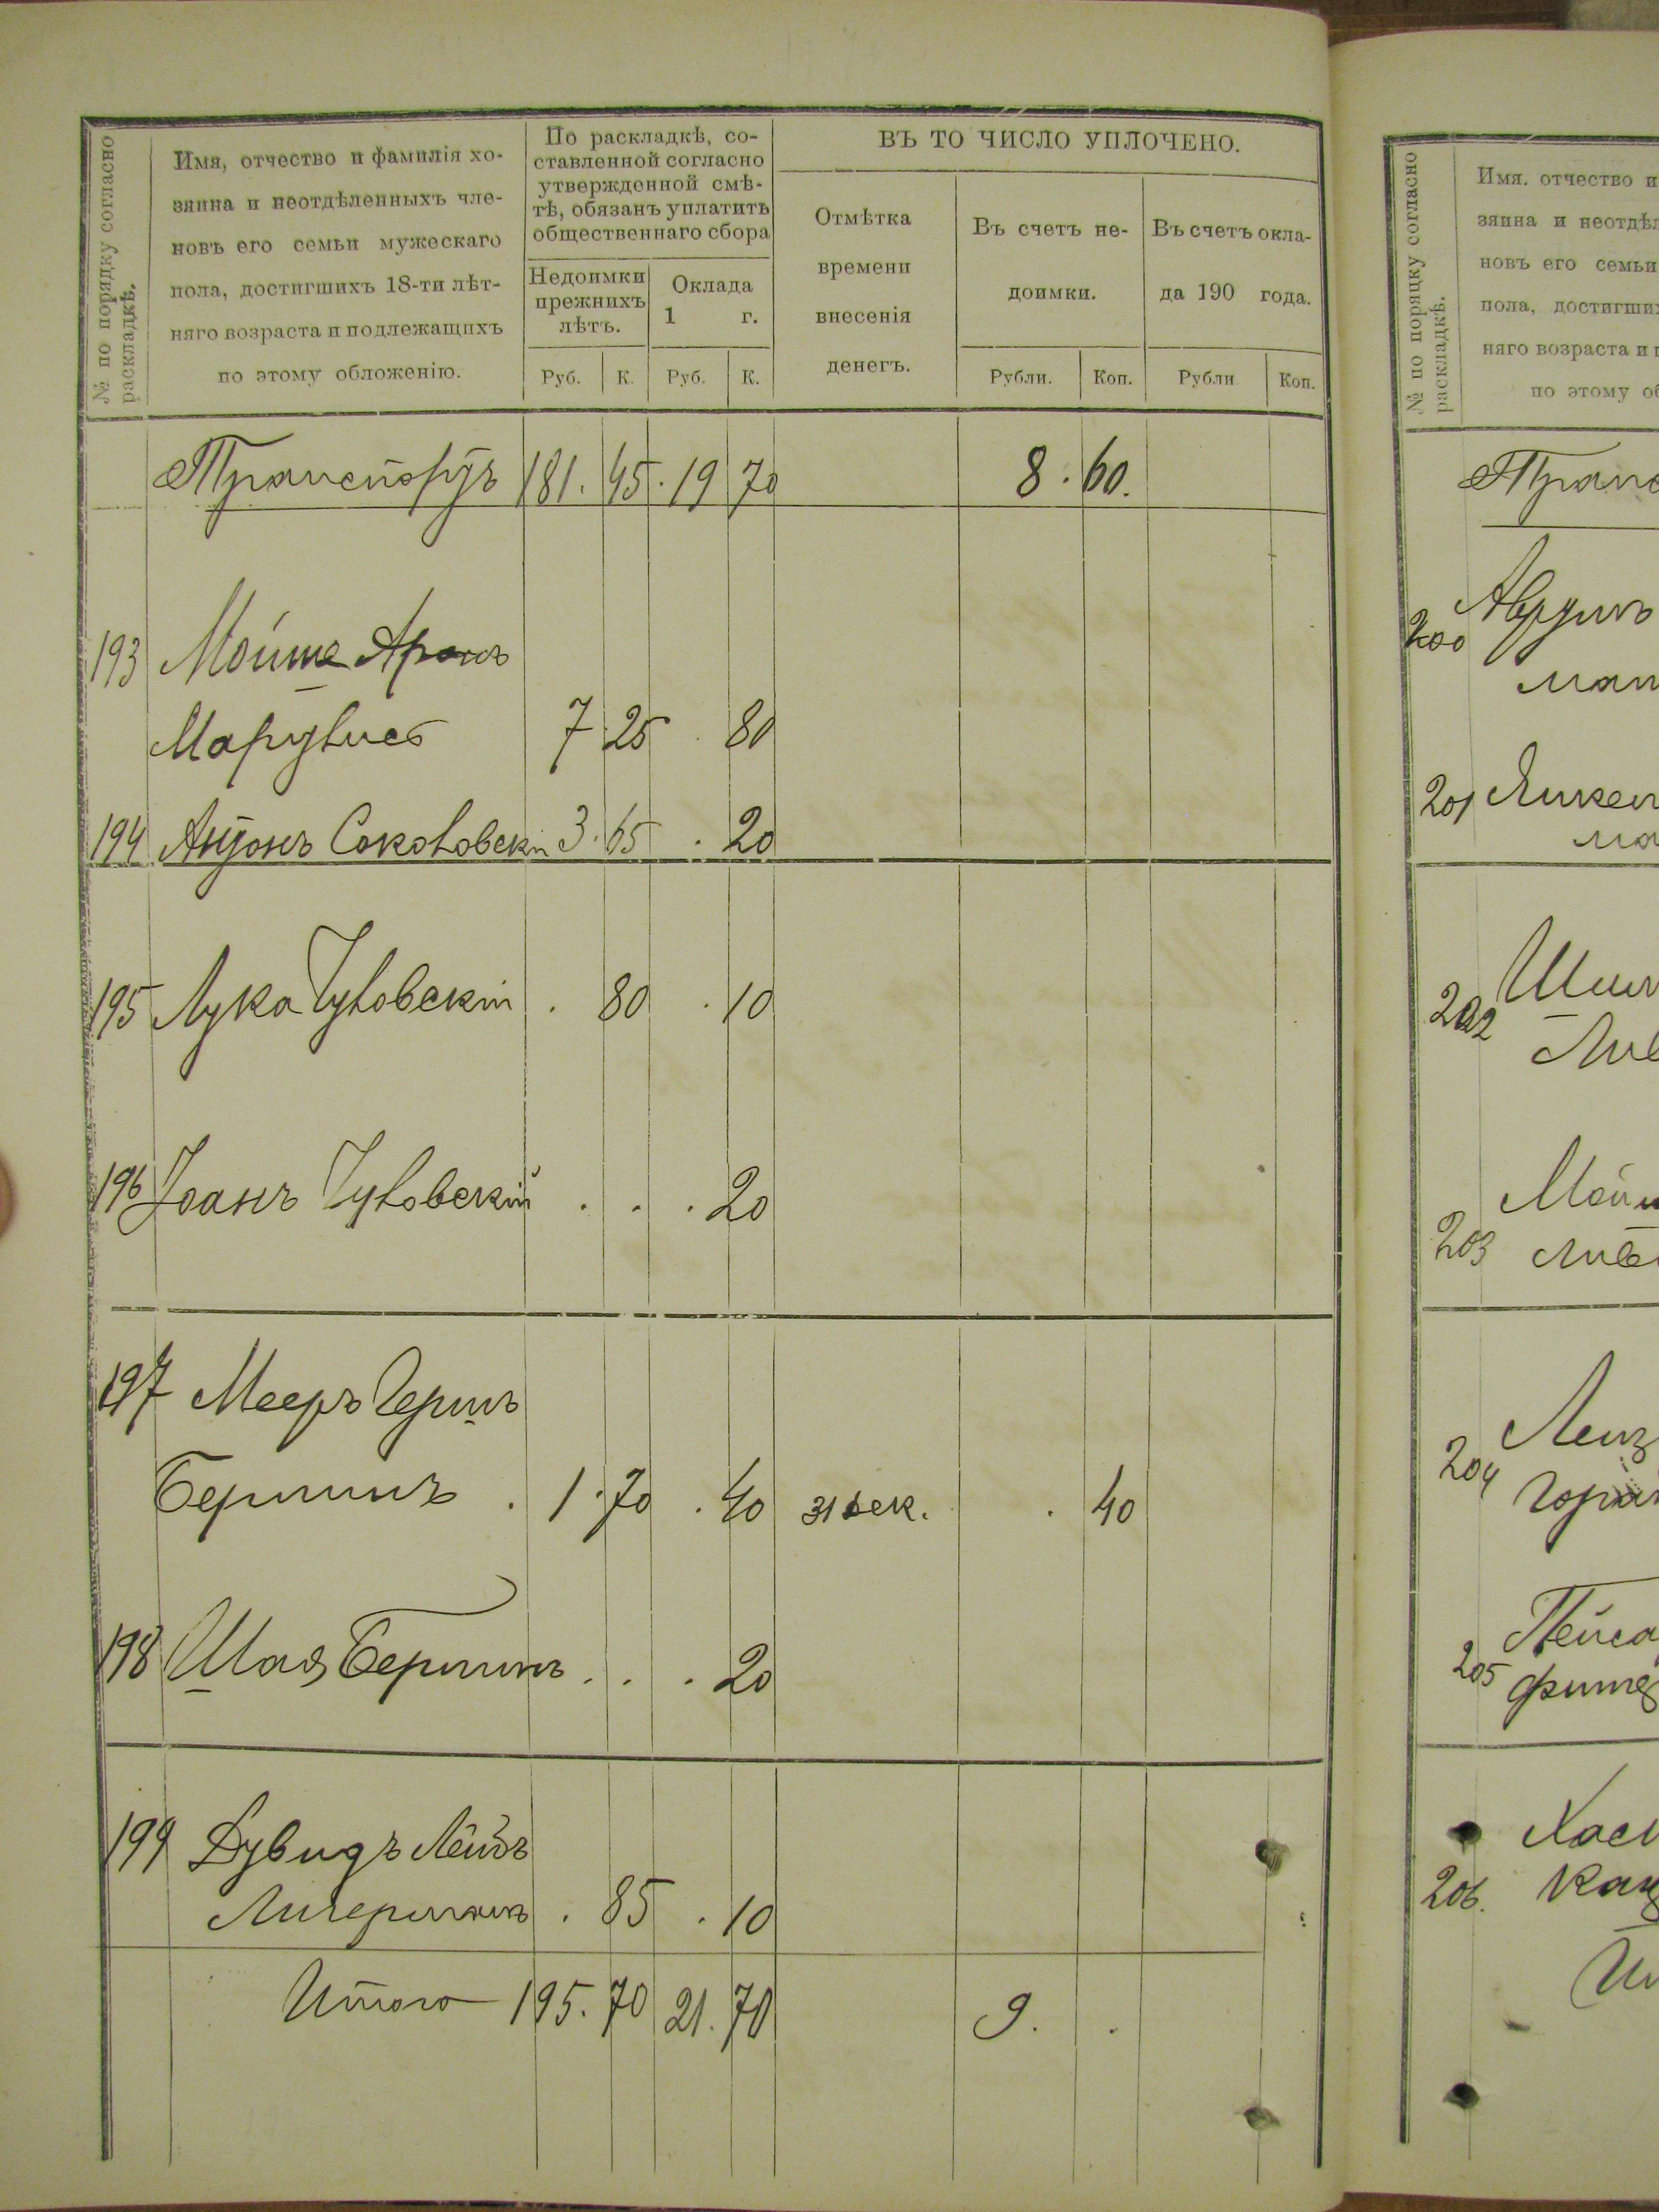 № по порядку согласно
раскладкѣ.
Имя, отчество и фамилія хо-
зяина и неотдѣленныхъ чле-
новъ его семьи мужескаго
пола, достигшихъ 18-ти лѣт-
няго возраста и подлежащихъ
по этому обложенію.
По раскладкѣ, со-
ставленной согласно
утвержденной смѣ-
тѣ, обязанъ уплатить
общественнаго сбора
Недоимки
прежнихъ
лѣтъ.
Оклада
1 г.
Руб. К. Руб. К.
ВЪ ТО ЧИСЛО УПЛОЧЕНО.
Отмѣтка
времени
внесенія
денегъ.
Въ счетъ не-
доимки.
Въ счетъ окла-
да 190 года.
Рубли. Коп. Рубли Коп.
Транспортъ 181. 45. 19 70 8. 60.
193 Мойше Аронъ
7 25 . 80
194 Антонъ Соколовскі 3. 65 . 20
195 Лука Чуловскій . 80 . 10
196 Іоанъ Чуловскій . . . 20
197 Мееръ Гершъ
Бершинъ . 1. 70 . 40 31 дек. . 40
198 Шая Бершинъ . . . 20
199 Дувидъ Лейбъ
. 85 . 10
Итого 195. 70 21. 70 9. .
№ по порядку согласно
раскладкѣ.
Имя. отчество и
зяина и неотдѣл
новъ его семьи
пола, достигших
няго возраста и п
по этому об
Транс
200
201
202
203 Мойш
204
205 Пейса
206.